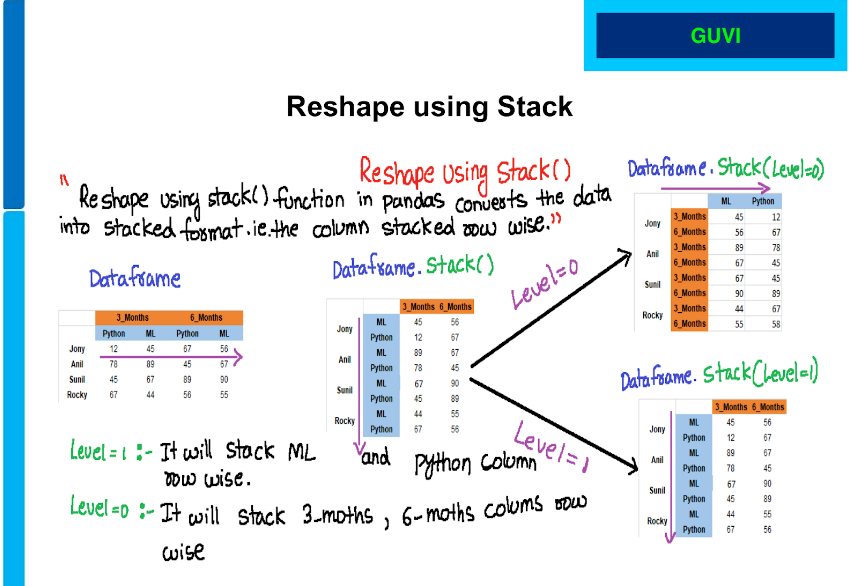 GUVI
Reshape using Stack
Reshape using Stack()
" Reshape using stack() function in pandas converts the data
into stacked format.ie.the column stacked row wise."
Dataframe
3_Months 6_Months
Python ML Python ML
Jony 12 45 67 56
Anil 78 89 45 67
Sunil 45 67 89 90
Rocky 67 44 56 55
Dataframe.Stack()
3_Months 6_Months
Jony ML 45 56
Python 12 67
Anil ML 89 67
Python 78 45
Sunil ML 67 90
Python 45 89
Rocky ML 44 55
Python 67 56
Level=0
Level=1
Dataframe.Stack(Level=0)
ML Python
Jony 3_Months 45 12
6_Months 56 67
Anil 3_Months 89 78
6_Months 67 45
Sunil 3_Months 67 45
6_Months 90 89
Rocky 3_Months 44 67
6_Months 55 58
Dataframe.Stack(Level=1)
3_Months 6_Months
Jony ML 45 56
Python 12 67
Anil ML 89 67
Python 78 45
Sunil ML 67 90
Python 45 89
Rocky ML 44 55
Python 67 56
Level=1 :- It will stack ML and Python Column
row wise.
Level=0 :- It will stack 3-moths, 6-moths colums row
wise